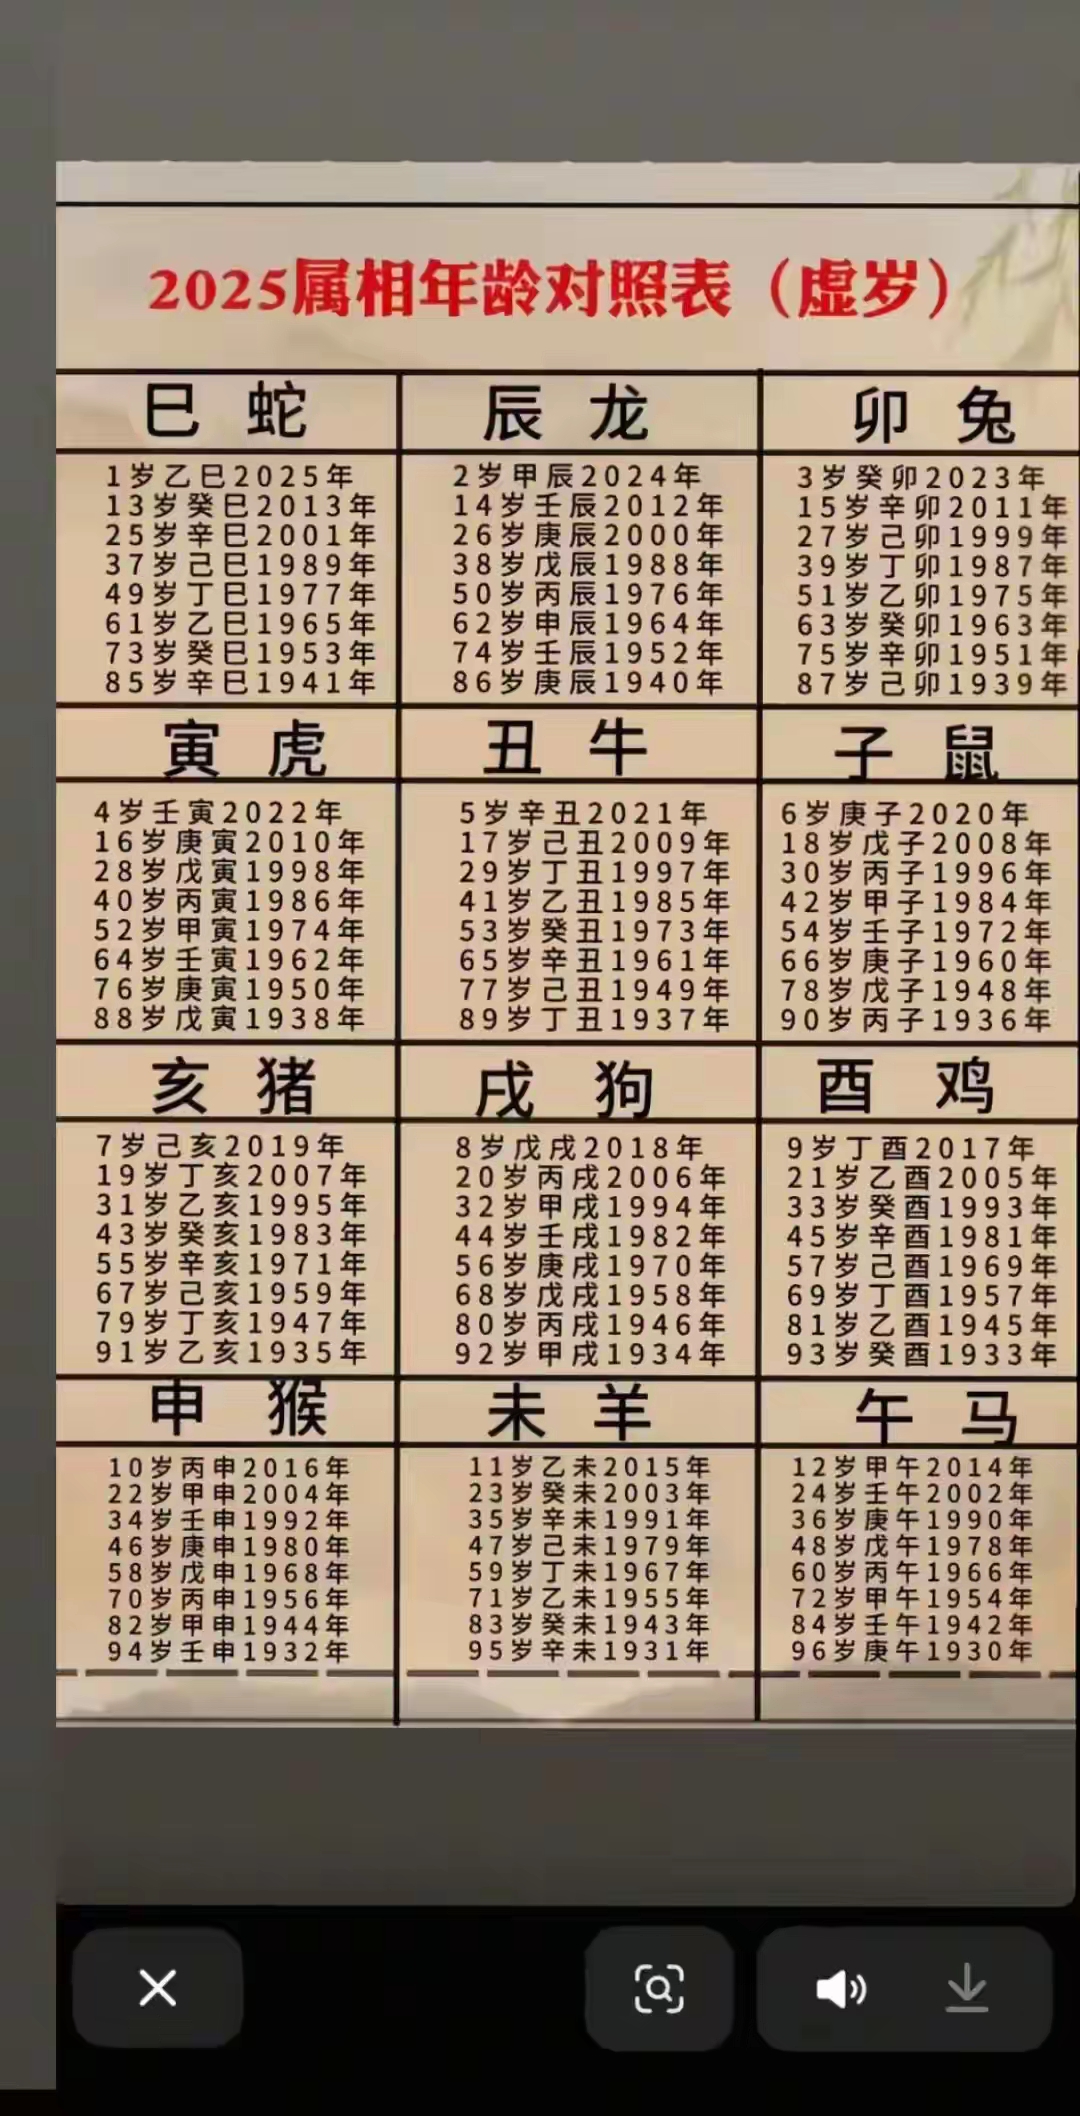 2025属相年龄对照表（虚岁）
巳 蛇
1岁乙巳2025年
13岁癸巳2013年
25岁辛巳2001年
37岁己巳1989年
49岁丁巳1977年
61岁乙巳1965年
73岁癸巳1953年
85岁辛巳1941年
辰 龙
2岁甲辰2024年
14岁壬辰2012年
26岁庚辰2000年
38岁戊辰1988年
50岁丙辰1976年
62岁申辰1964年
74岁壬辰1952年
86岁庚辰1940年
卯 兔
3岁癸卯2023年
15岁辛卯2011年
27岁己卯1999年
39岁丁卯1987年
51岁乙卯1975年
63岁癸卯1963年
75岁辛卯1951年
87岁己卯1939年
寅 虎
4岁壬寅2022年
16岁庚寅2010年
28岁戊寅1998年
40岁丙寅1986年
52岁甲寅1974年
64岁壬寅1962年
76岁庚寅1950年
88岁戊寅1938年
丑 牛
5岁辛丑2021年
17岁己丑2009年
29岁丁丑1997年
41岁乙丑1985年
53岁癸丑1973年
65岁辛丑1961年
77岁己丑1949年
89岁丁丑1937年
子 鼠
6岁庚子2020年
18岁戊子2008年
30岁丙子1996年
42岁甲子1984年
54岁壬子1972年
66岁庚子1960年
78岁戊子1948年
90岁丙子1936年
亥 猪
7岁己亥2019年
19岁丁亥2007年
31岁乙亥1995年
43岁癸亥1983年
55岁辛亥1971年
67岁己亥1959年
79岁丁亥1947年
91岁乙亥1935年
戌 狗
8岁戊戌2018年
20岁丙戌2006年
32岁甲戌1994年
44岁壬戌1982年
56岁庚戌1970年
68岁戊戌1958年
80岁丙戌1946年
92岁甲戌1934年
酉 鸡
9岁丁酉2017年
21岁乙酉2005年
33岁癸酉1993年
45岁辛酉1981年
57岁己酉1969年
69岁丁酉1957年
81岁乙酉1945年
93岁癸酉1933年
申 猴
10岁丙申2016年
22岁甲申2004年
34岁壬申1992年
46岁庚申1980年
58岁戊申1968年
70岁丙申1956年
82岁甲申1944年
94岁壬申1932年
未 羊
11岁乙未2015年
23岁癸未2003年
35岁辛未1991年
47岁己未1979年
59岁丁未1967年
71岁乙未1955年
83岁癸未1943年
95岁辛未1931年
午 马
12岁甲午2014年
24岁壬午2002年
36岁庚午1990年
48岁戊午1978年
60岁丙午1966年
72岁甲午1954年
84岁壬午1942年
96岁庚午1930年